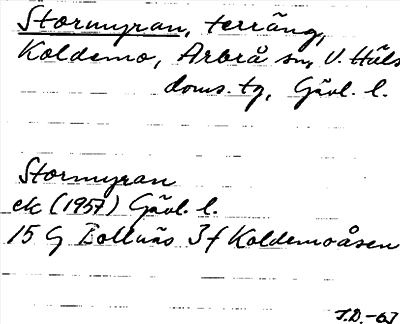 Stormyran, terräng,
Koldemo, Arbrå sn, V. Häls
doms. tg, Gävl. l.
Stormyran
ek (1957) Gävl. l.
15 G Bollnäs 3f Koldemoåsen
J.D. -63